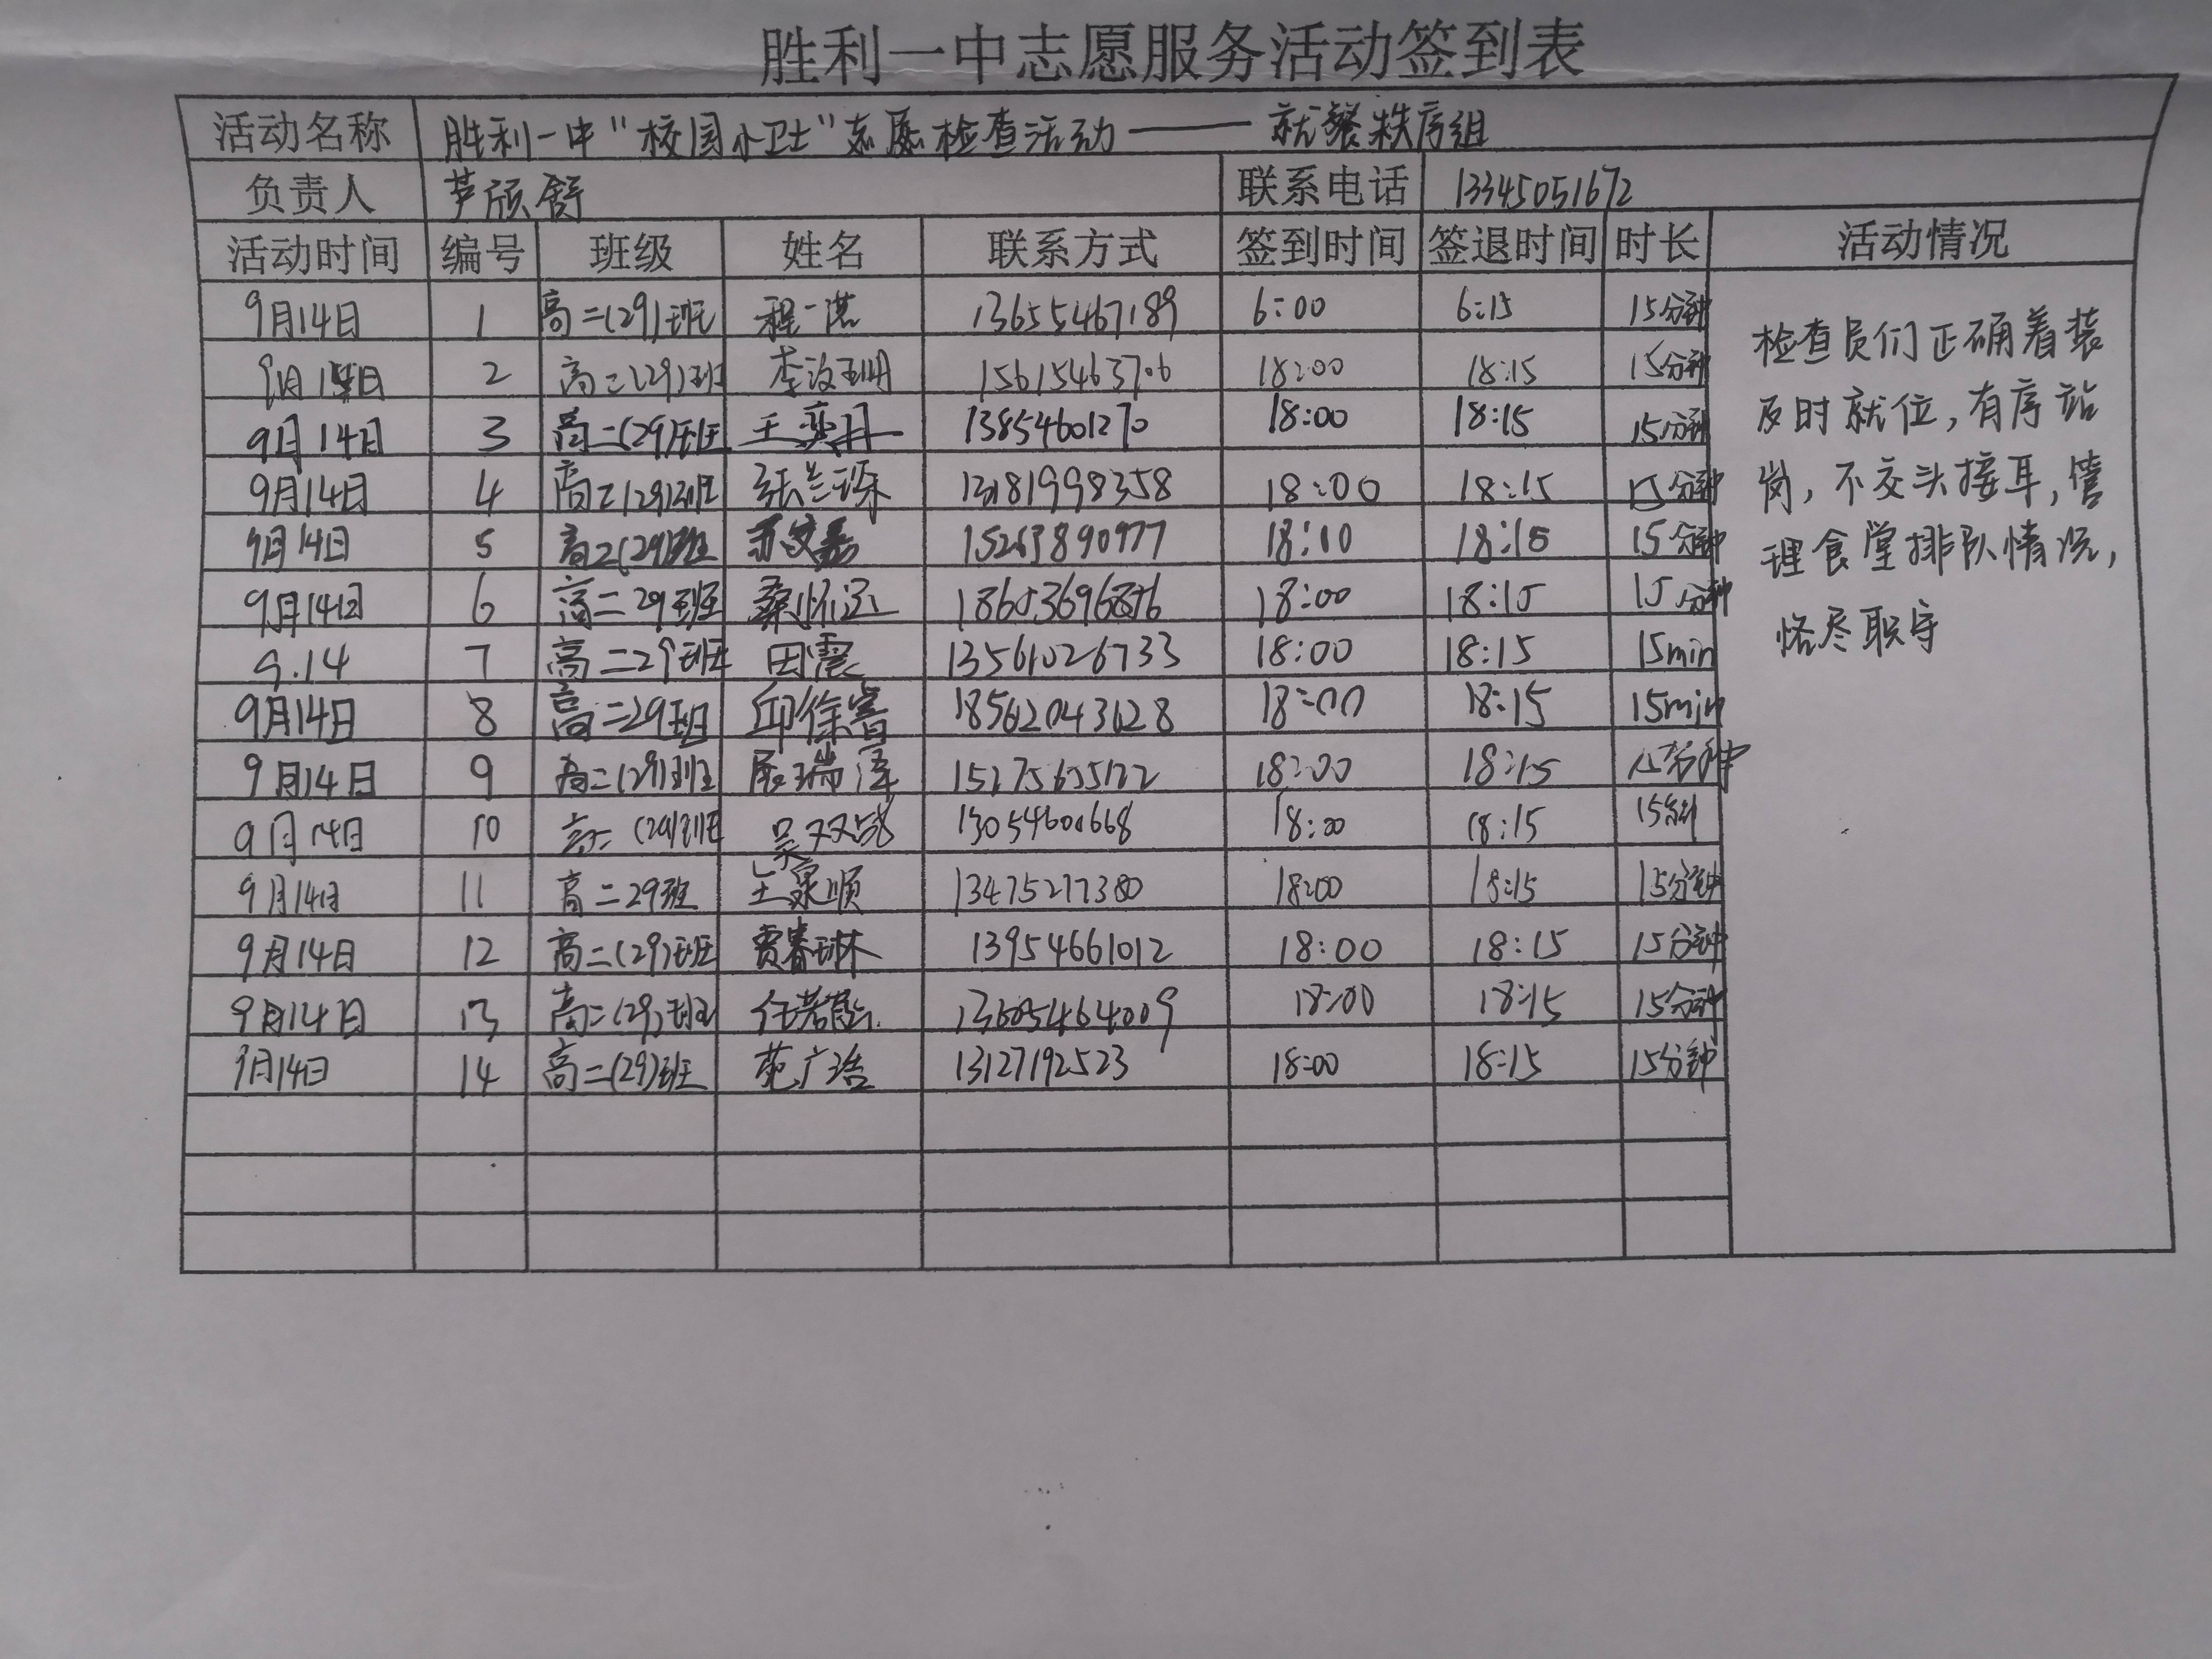 胜利一中志愿服务活动签到表
活动名称 胜利一中“校园小卫士”志愿检查活动——就餐秩序组
负责人 芦颀舒 联系电话 13345051672
活动时间 编号 班级 姓名 联系方式 签到时间 签退时间 时长 活动情况
9月14日 1 高二(29)班 程一诺 13655467189 6:00 6:15 15分钟
9月14日 2 高二(29)班 李汶玥 15615463706 18:00 18:15 15分钟
9月14日 3 高二(29)班 王奕丹 13854601270 18:00 18:15 15分钟
9月14日 4 高二(29)班 张兰琛 13181998358 18:00 18:15 15分钟
9月14日 5 高二(29)班 15263890977 18:00 18:15 15分钟
9月14日 6 高二29班 桑怀远 18:00 18:15 15分钟
9.14 7 高二29班 田震 13561026733 18:00 18:15 15min
9月14日 8 高二29班 邱徐睿 18562043628 18:00 18:15 15min
9月14日 9 高二(29)班 展瑞泽 18:00 18:15 15分钟
9月14日 10 高二(29)班 吴双成 13054600668 18:00 18:15 15分钟
9月14日 11 高二29班 王泉顺 13475277380 18:00 18:15 15分钟
9月14日 12 高二(29)班 贾睿琳 13954661012 18:00 18:15 15分钟
9月14日 13 高二(29)班 13605464009 18:00 18:15 15分钟
9月14日 14 高二(29)班 苑广浩 13127192523 18:00 18:15 15分钟
检查员们正确着装
及时就位,有序站
岗,不交头接耳,管
理食堂排队情况,
恪尽职守